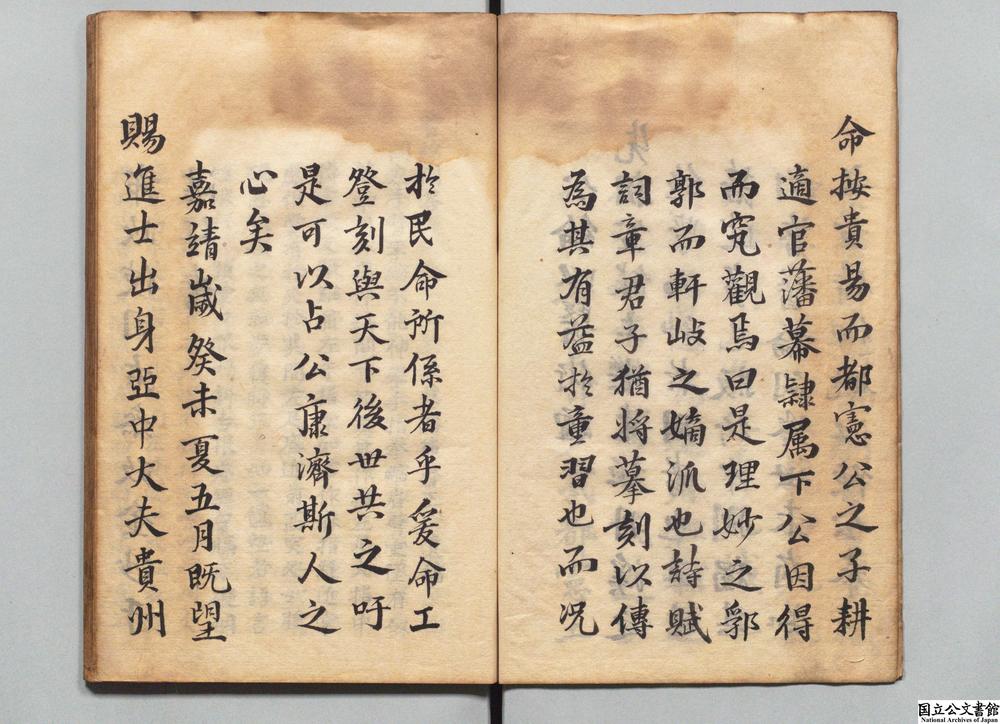 命按貴易而都憲公之子耕
適官藩幕隷属下公因得
而究觀焉曰是理妙之郛
郭而軒岐之嫡派也詩賦
詞章君子猶將摹刻以傳
為其有益於童習也而况
於民命所係者乎爰命工
登刻與天下後世共之吁
是可以占公康濟斯人之
心矣
嘉靖嵗癸未夏五月既望
賜進士出身亞中大夫貴州
国立公文書館
National Archives of Japan